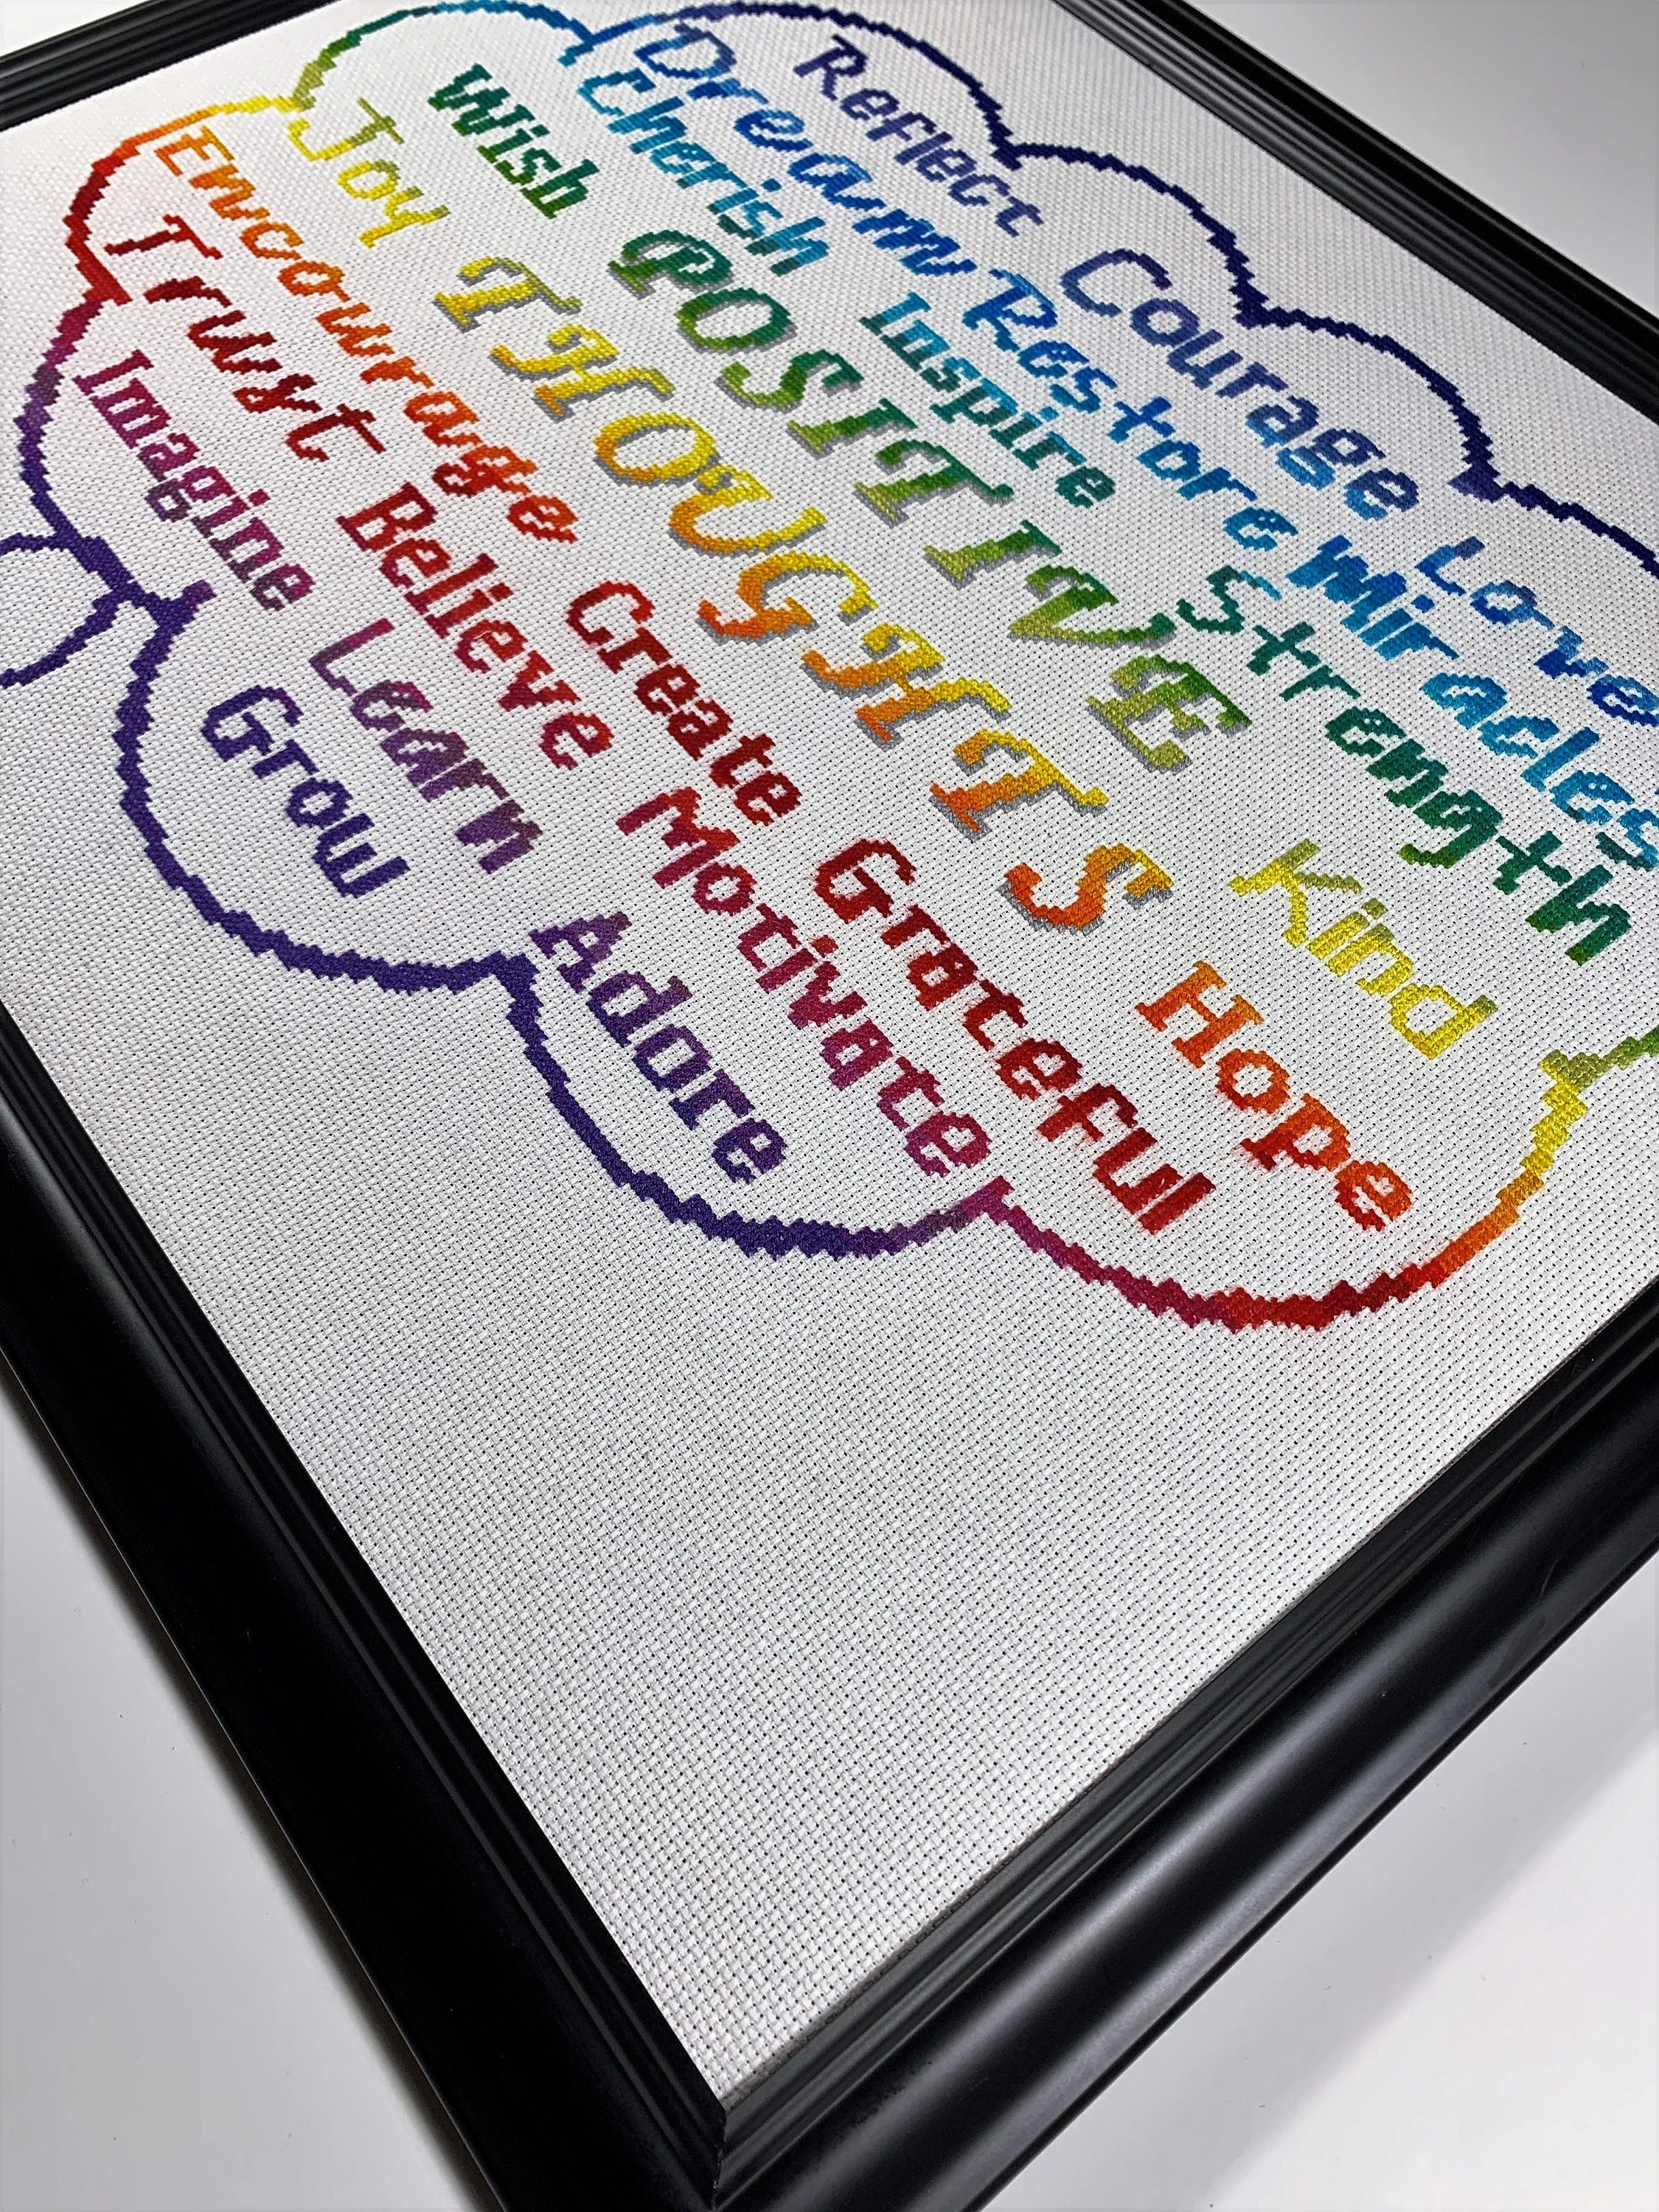 Reflect Courage Love
Dream Restore Miracles
Wish Cherish Inspire Strength
Joy POSITIVE Kind
THOUGHTS
Encourage Create Grateful Hope
Trust Believe Motivate
Imagine Learn Adore
Grow